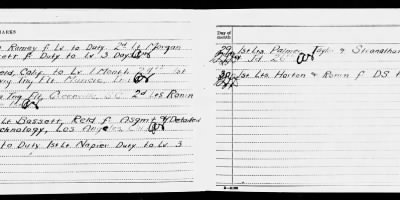 MARKS
Ramey f Lv to Duty 2d Lt Morgan
ett f Duty to Lv 3 Days
Calif to Lv 1 Month 1st
Tng Flt. Muncie, Ind
Tng Flt Greenville SC 2d Lts Ronin
Lt Bassett, Reld f Asgmt & Detached
chnology, Los Angeles, Cal
to Duty 1st Lt Napier Duty to Lv 3
Day of
month
29 1st Lts Palmer, Taylor & Stranathan
Jd
30 1st Lts Horton & Ronin f DS t